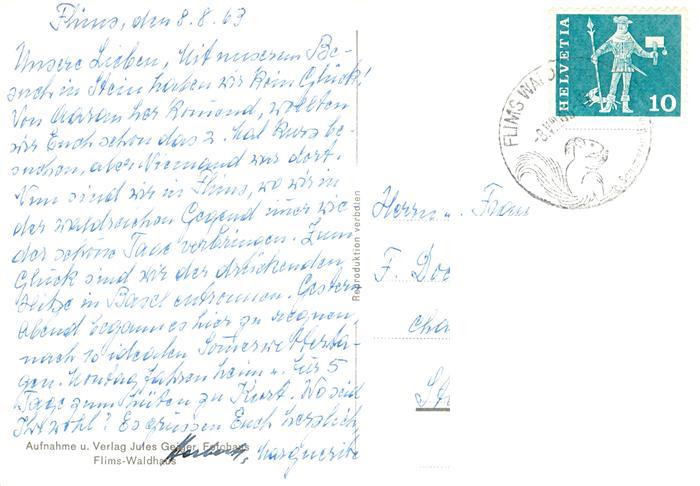 Flims, den 8.8.63
Unsere Lieben, Mit unserem Be-
such in Stein haben wir kein Glück!
Von Maran her komend, wollten
wir Euch schon das 2. Mal kurz be-
suchen, aber Niemand war dort.
Nun sind wir in Flims, wo wir in
der waldreichen Gegend imer wie-
der schöne Tage verbringen. Zum
Glück sind wir der drückenden
Hitze in Basel entronnen. Gestern
Abend begann es hier zu regnen,
nach 10 idealen Somerwetterta-
gen. Montag fahren heim u. für 5
Tage zum hüten zu Kurt. Wo sind
Ihr wohl? Es grüssen Euch herzlich
Herbert, Marguerite
Aufnahme u. Verlag Jules Geiger, Fotohaus
Flims-Waldhaus
Reproduktion verboten
HELVETIA
10
FLIMS WALD
Herrn u. Frau
F. Doc
Cha